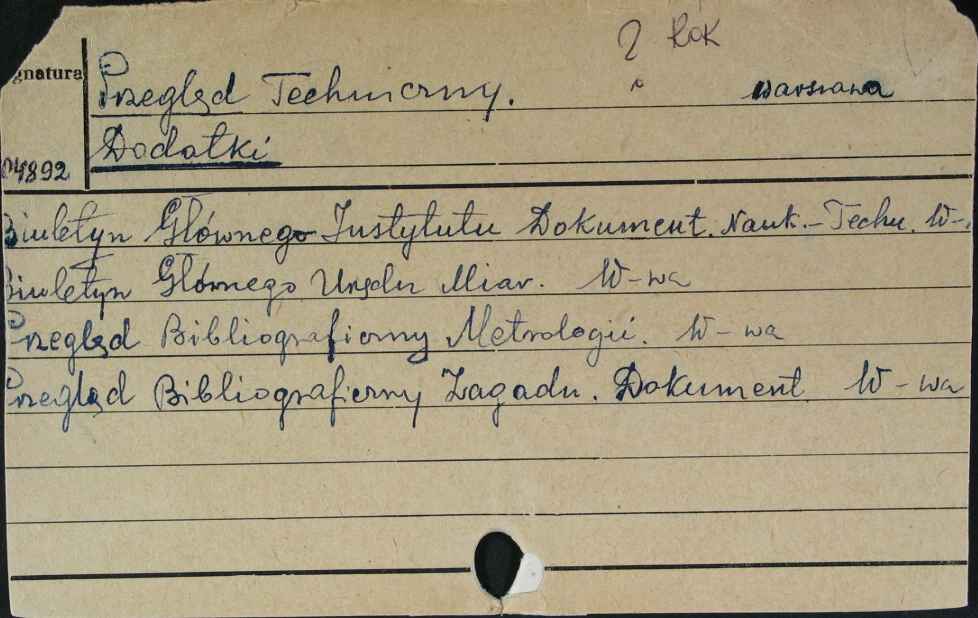 ? Rok
gnatura
Przegląd Techniczny. Warszawa
Dodatki
04892
Biuletyn Głównego Instytutu Dokument. Nauk.-Techn. W-
Biuletyn Głównego Urzędu Miar. W-wa
Przegląd Bibliograficzny Metrologii. W-wa
Przegląd Bibliograficzny Zagadn. Dokument W-wa